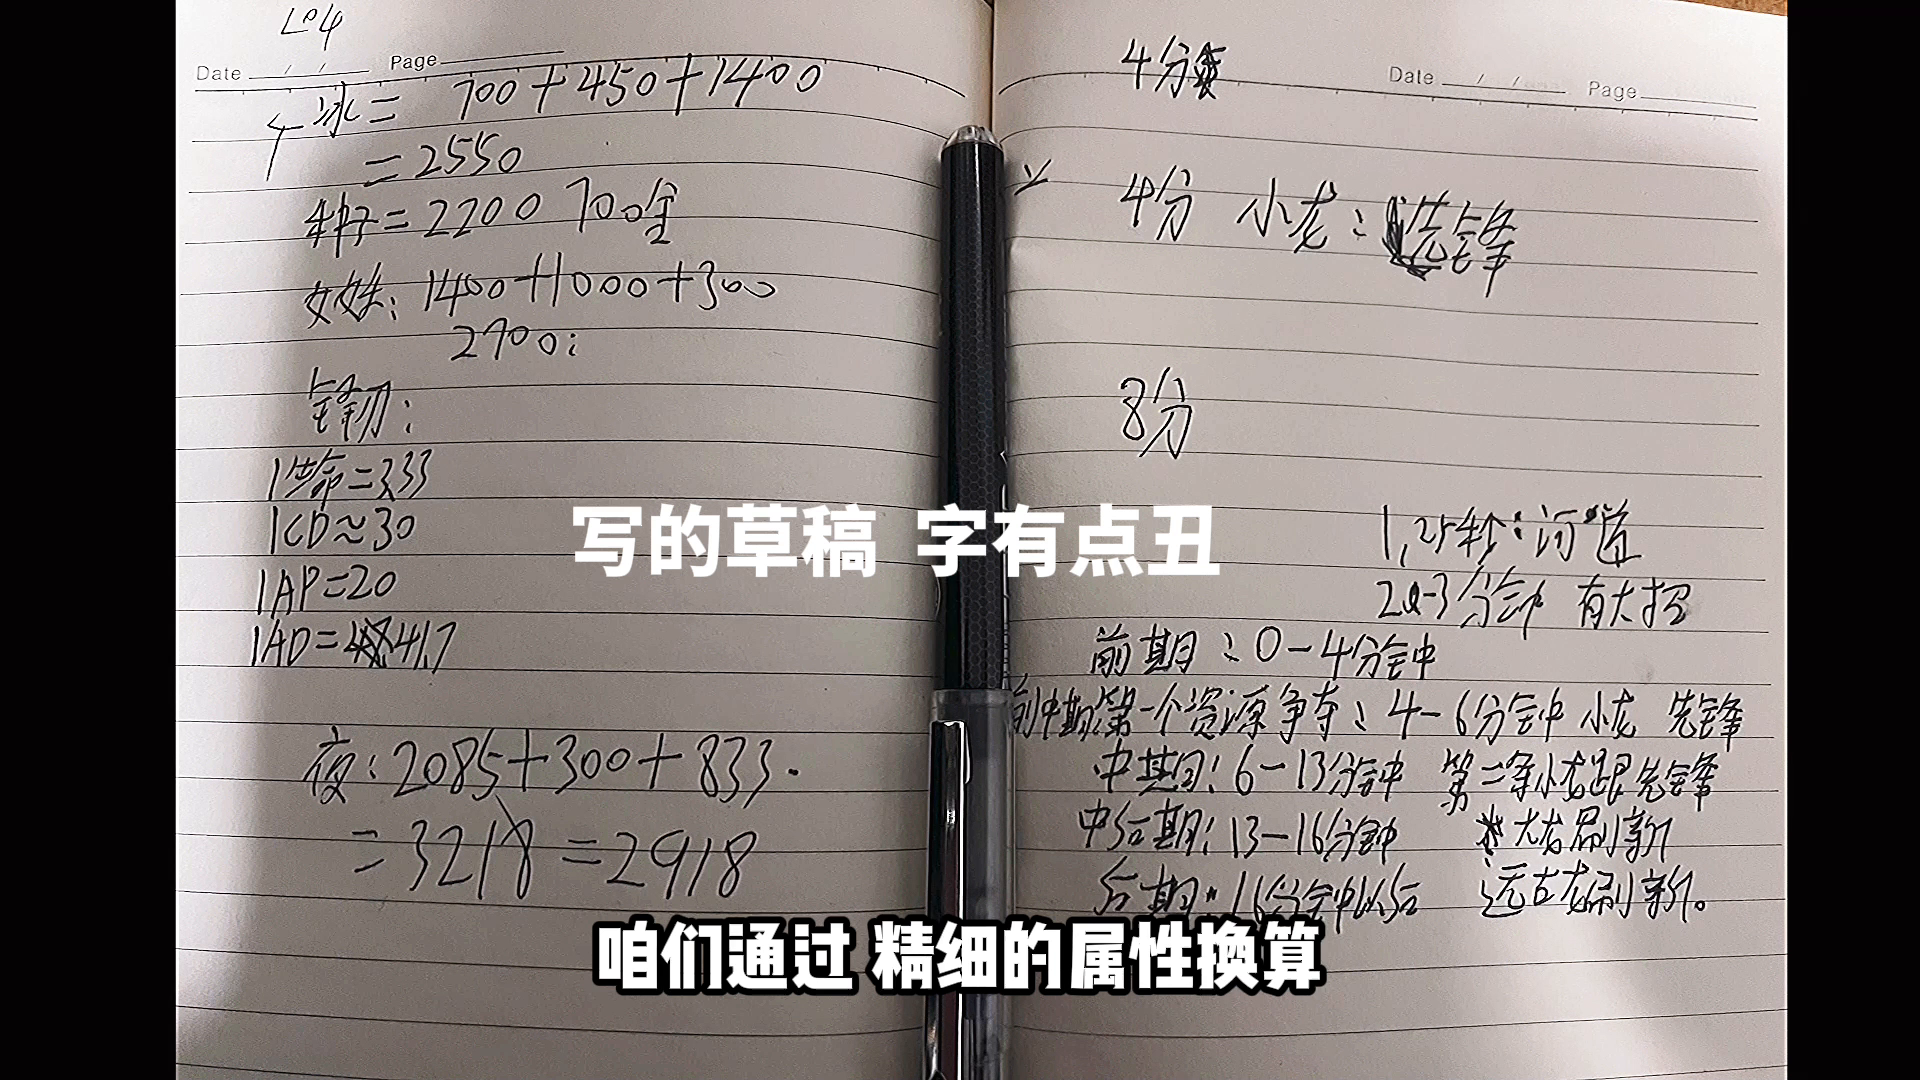 Date / / Page
冰= 700+450+1400
=2550
种子=2200 700金
女妖: 1400+1000+300
2700;
锋刃:
1命=333
1CD≈30
1AP=20
1AD=41.7
夜:2085+300+833.
=3218=2918
Date / / Page
4分
4分 小龙:先锋
8分
1,25秒:河道
2-3分钟 有大招
前期:0-4分钟
前中期第一个资源争夺:4-6分钟 小龙 先锋
中期:6-13分钟 第二条小龙跟先锋
中后期:13-16分钟 大龙刷新
后期:16分钟以后 远古龙刷新。
写的草稿 字有点丑
咱们通过 精细的属性换算